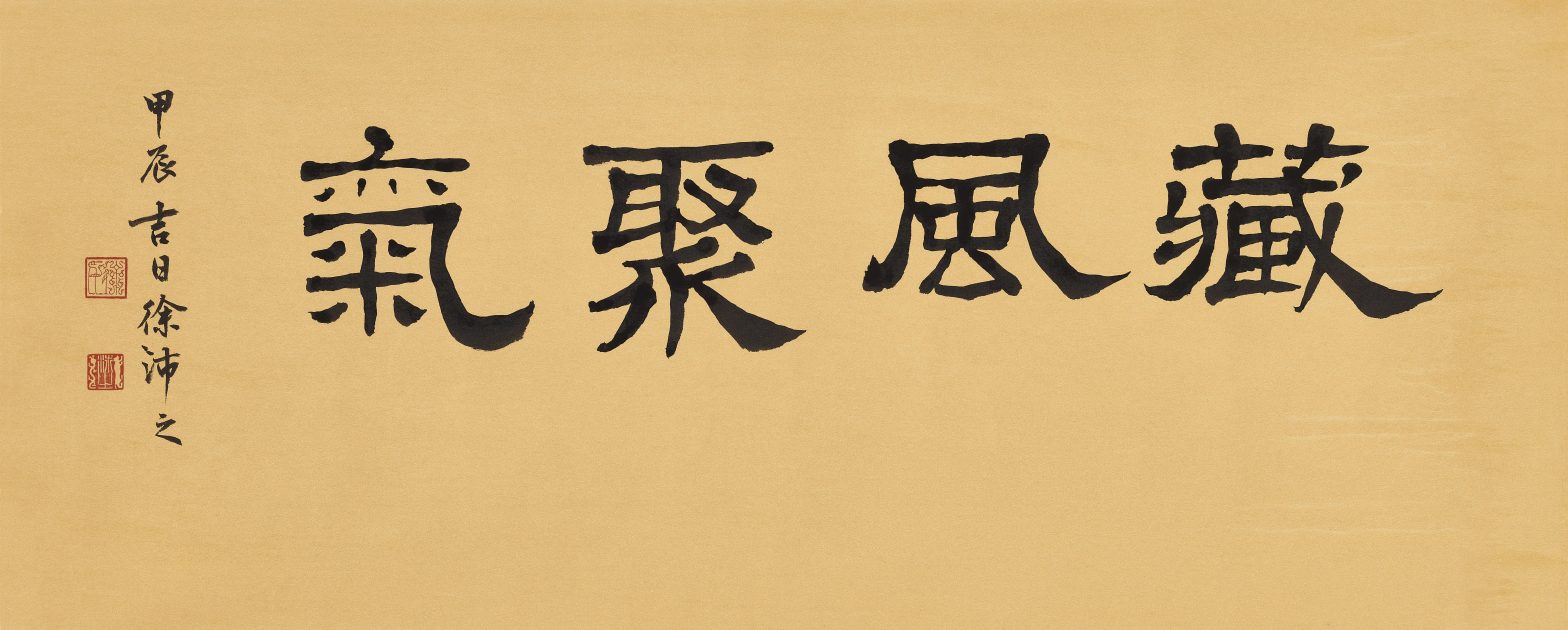 藏風聚氣
甲辰吉日徐沛之